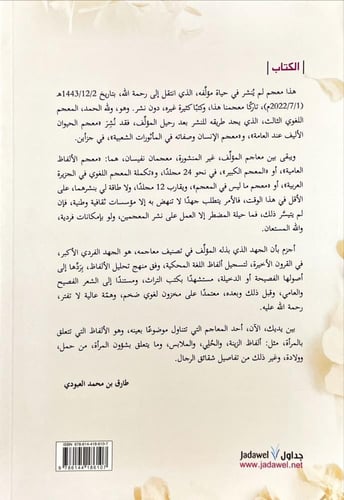 الكتاب
هذا معجم لم يُنشر في حياة مؤلّفه، الذي انتقل إلى رحمة الله، بتاريخ 1443/12/2هـ
(2022/7/1م)، تاركًا معجمنا هذا، وكتبًا كثيرة غيره، دون نشر. وهو، ولله الحمد، المعجم
اللغوي الثالث، الذي يجد طريقه للنشر بعد رحيل المؤلّف، فقد نُشِرَ «معجم الحيوان
الأليف عند العامة»، و«معجم الإنسان وصفاته في المأثورات الشعبية»، في جزأين.
ويبقى بين معاجم المؤلّف، غير المنشورة، معجمان نفيسان، هما: «معجم الألفاظ
العامية»، أو «المعجم الكبير»، في نحو 24 مجلدًا، و«تكملة المعجم اللغوي في الجزيرة
العربية»، أو «معجم ما ليس في المعجم»، ويقارب 12 مجلدًا، ولا طاقة لي بنشرهما، على
الأقل في هذا الوقت، فالأمر يتطلب جهدًا لا تنهض به إلا مؤسسات ثقافية وطنية، فإن
لم يتيسَّر ذلك، فما حيلة المضطر إلا العمل على نشر المعجمين، ولو بإمكانات فردية،
والله المستعان.
أجزم بأن الجهد الذي بذله المؤلف في تصنيف معاجمه، هو الجهد الفردي الأكبر،
في القرون الأخيرة، لتسجيل ألفاظ اللغة المحكية، وفق منهج تحليل الألفاظ، بردّها إلى
أصولها الفصيحة أو الدخيلة، مستشهدًا بكتب التراث، ومستندًا إلى الشعر الفصيح
والعامي، وقبل ذلك وبعده، معتمدًا على مخزون لغوي ضخم، وهمّة عالية لا تفتر،
رحمة الله عليه.
بين يديك، الآن، أحد المعاجم التي تتناول موضوعًا بعينه، وهو الألفاظ التي تتعلق
بالمرأة، مثل: ألفاظ الزينة، والحُلي، والملابس، وما يتعلق بشؤون المرأة، من حمل،
وولادة، وغير ذلك من تفاصيل شقائق الرجال.
طارق بن محمد العبودي
جداول Jadawel
www.jadawel.net
ISBN 978-614-418-610-7
9 786144 186107